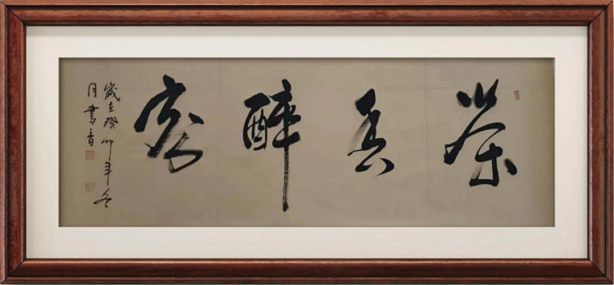 茶香醉客
歲在癸卯年冬
月書香